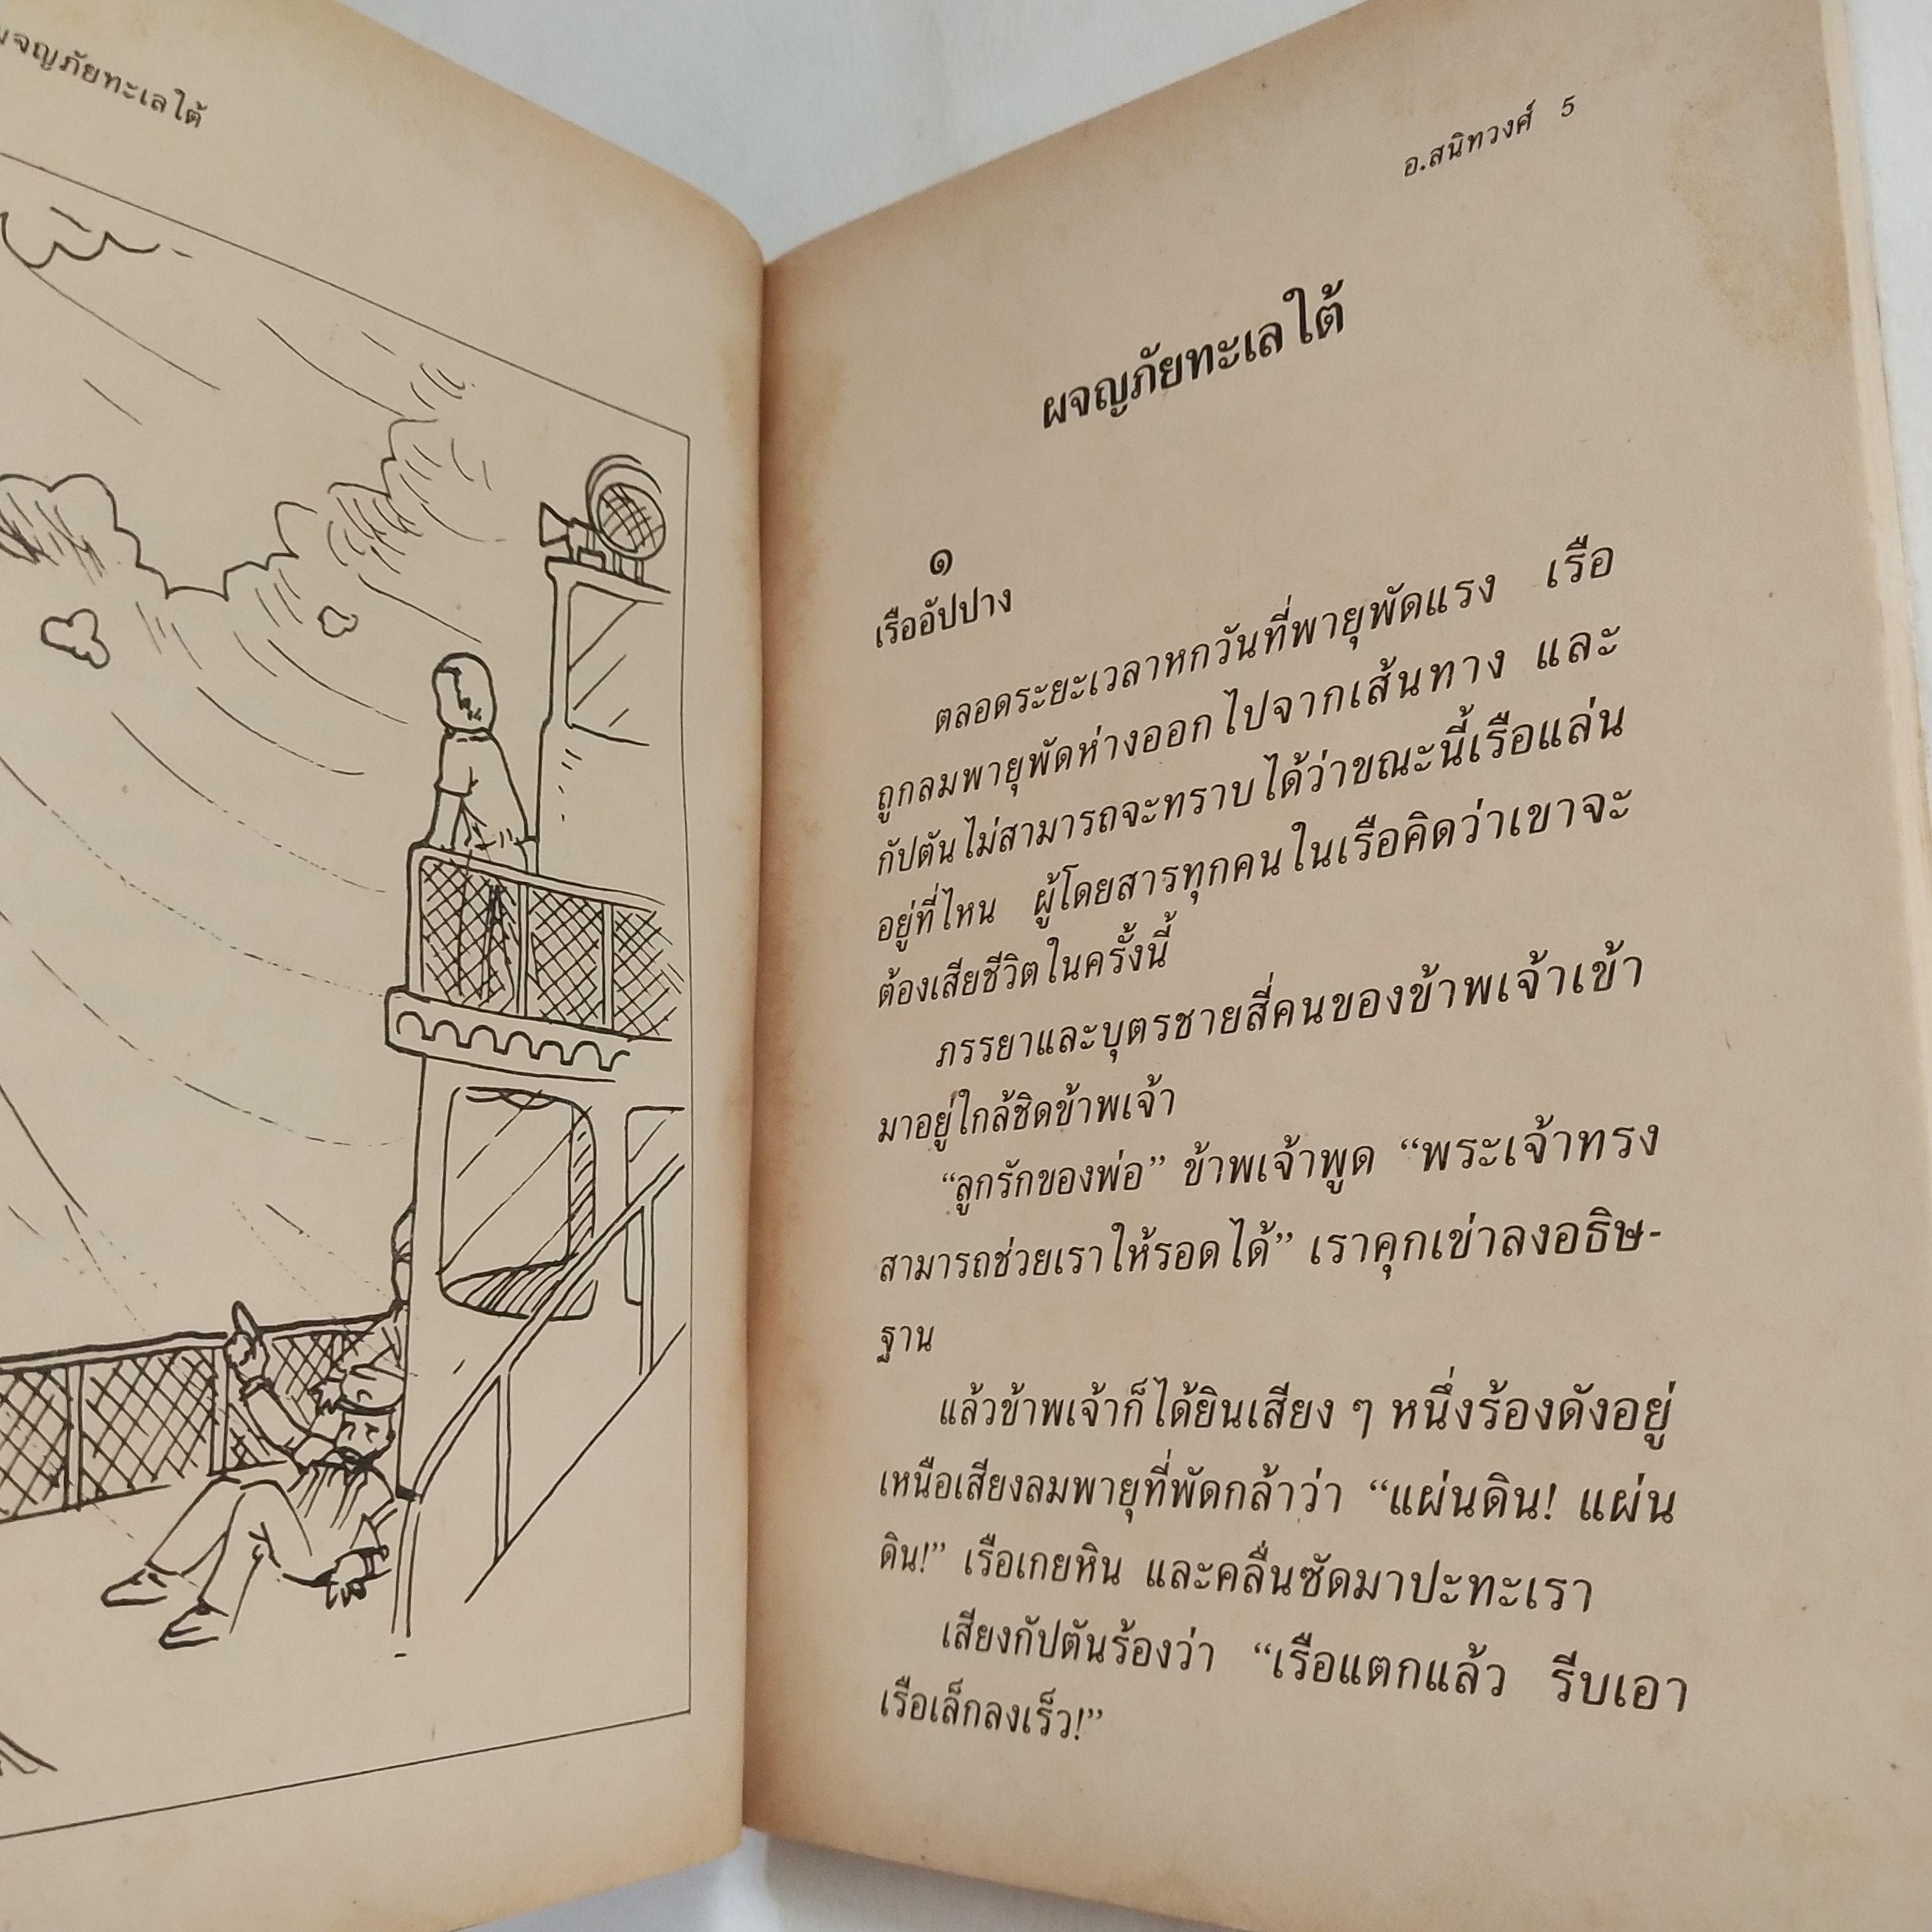 ผจญภัยทะเลใต้
อ.สนิทวงศ์ 5
ผจญภัยทะเลใต้
๑
เรืออัปปาง
ตลอดระยะเวลาหกวันที่พายุพัดแรง เรือ
ถูกลมพายุพัดห่างออกไปจากเส้นทาง และ
กัปตันไม่สามารถจะทราบได้ว่าขณะนี้เรือแล่น
อยู่ที่ไหน ผู้โดยสารทุกคนในเรือคิดว่าเขาจะ
ต้องเสียชีวิตในครั้งนี้
ภรรยาและบุตรชายสี่คนของข้าพเจ้าเข้า
มาอยู่ใกล้ชิดข้าพเจ้า
“ลูกรักของพ่อ” ข้าพเจ้าพูด “พระเจ้าทรง
สามารถช่วยเราให้รอดได้” เราคุกเข่าลงอธิษ-
ฐาน
แล้วข้าพเจ้าก็ได้ยินเสียง ๆ หนึ่งร้องดังอยู่
เหนือเสียงลมพายุที่พัดกล้าว่า “แผ่นดิน! แผ่น
ดิน!” เรือเกยหิน และคลื่นซัดมาปะทะเรา
เสียงกัปตันร้องว่า “เรือแตกแล้ว รีบเอา
เรือเล็กลงเร็ว!”